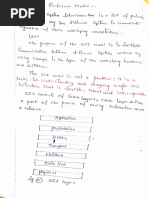 Reference Model :-
System Interconnection is a set of protocols
that allows any two different systems to communicate
regardless of their underlying architecture.
The purpose of the OSI model is to facilitate
communication between different systems without
changes to the logic of the underlying hardware
and software.
The OSI model is not a protocol : It is a
model for understanding and designing a n/w arc
that is flexible, robust and interoperable.
OSI consists of seven layers, each layer defines
a part of the process of moving information across
a n/w.
Application
presentation
session
Transport
Network
Data link
physical
OSI layers